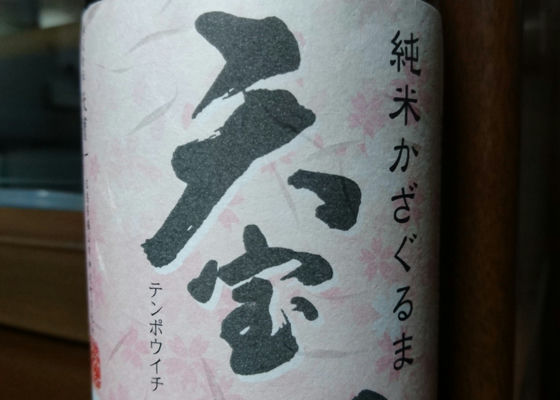 純米かざぐるま
天宝
テンポウイチ